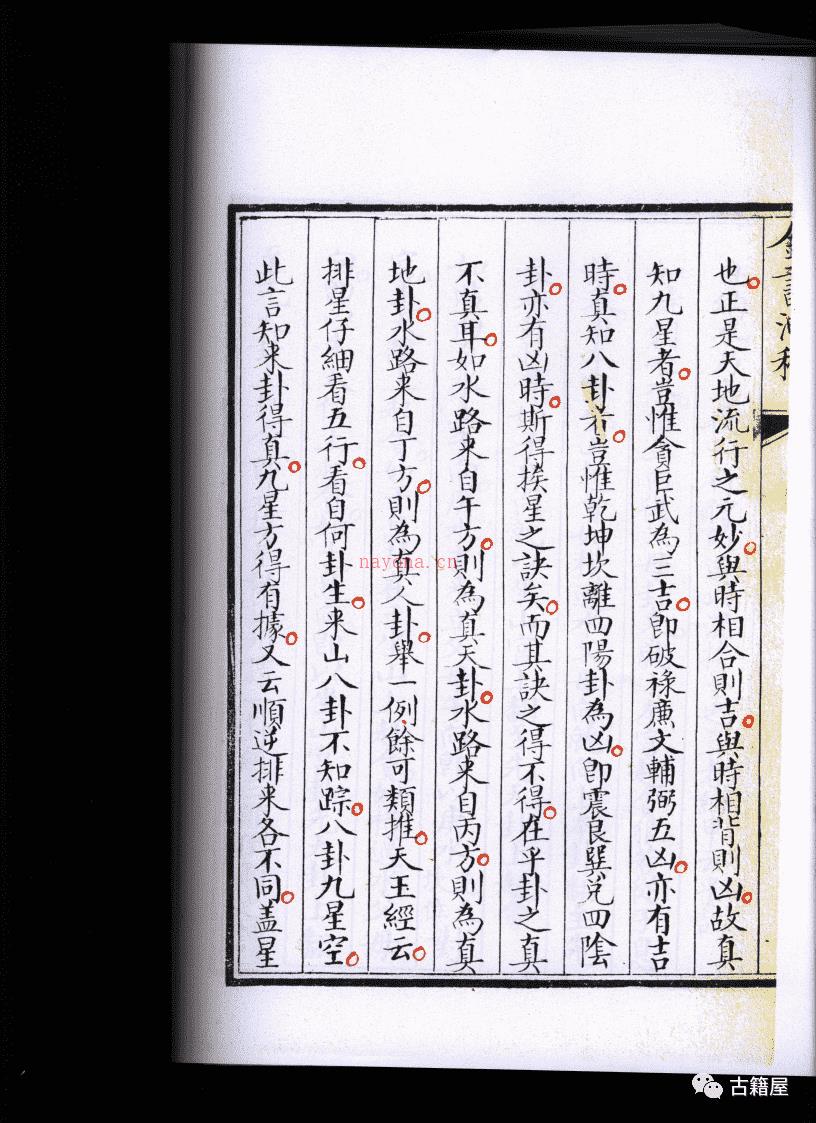 也正是天地流行之元妙與時相合則吉與時相背則凶故真
知九星者豈惟貪巨武為三吉即破祿廉文輔弼五凶亦有吉
時真知八卦者豈惟乾坤坎離四陽卦為凶即震艮巽兌四陰
卦亦有凶時斯得挨星之訣矣而其訣之得不得在乎卦之真
不真耳如水路来自午方則為真天卦水路来自丙方則為真
地卦水路来自丁方則為真人卦舉一例餘可類推天玉經云
排星仔細看五行看自何卦生来山八卦不知踪八卦九星空
此言知来卦得真九星方得有據又云順逆排来各不同盖星
nayona.cn
古籍屋